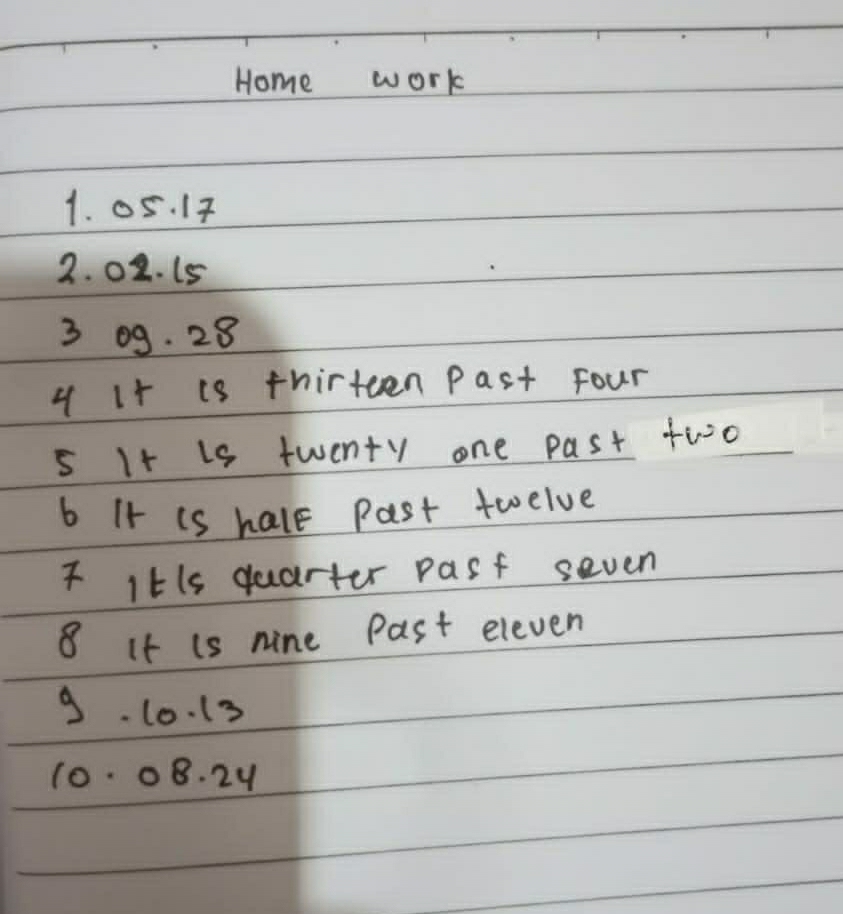 Home work
1. 05.17
2. 02.15
3 09.28
4 It is thirteen Past Four
5 It is twenty one past two
6 It is half Past twelve
7 it is quarter past seven
8 it is nine Past eleven
9 .10.13
10. 08.24